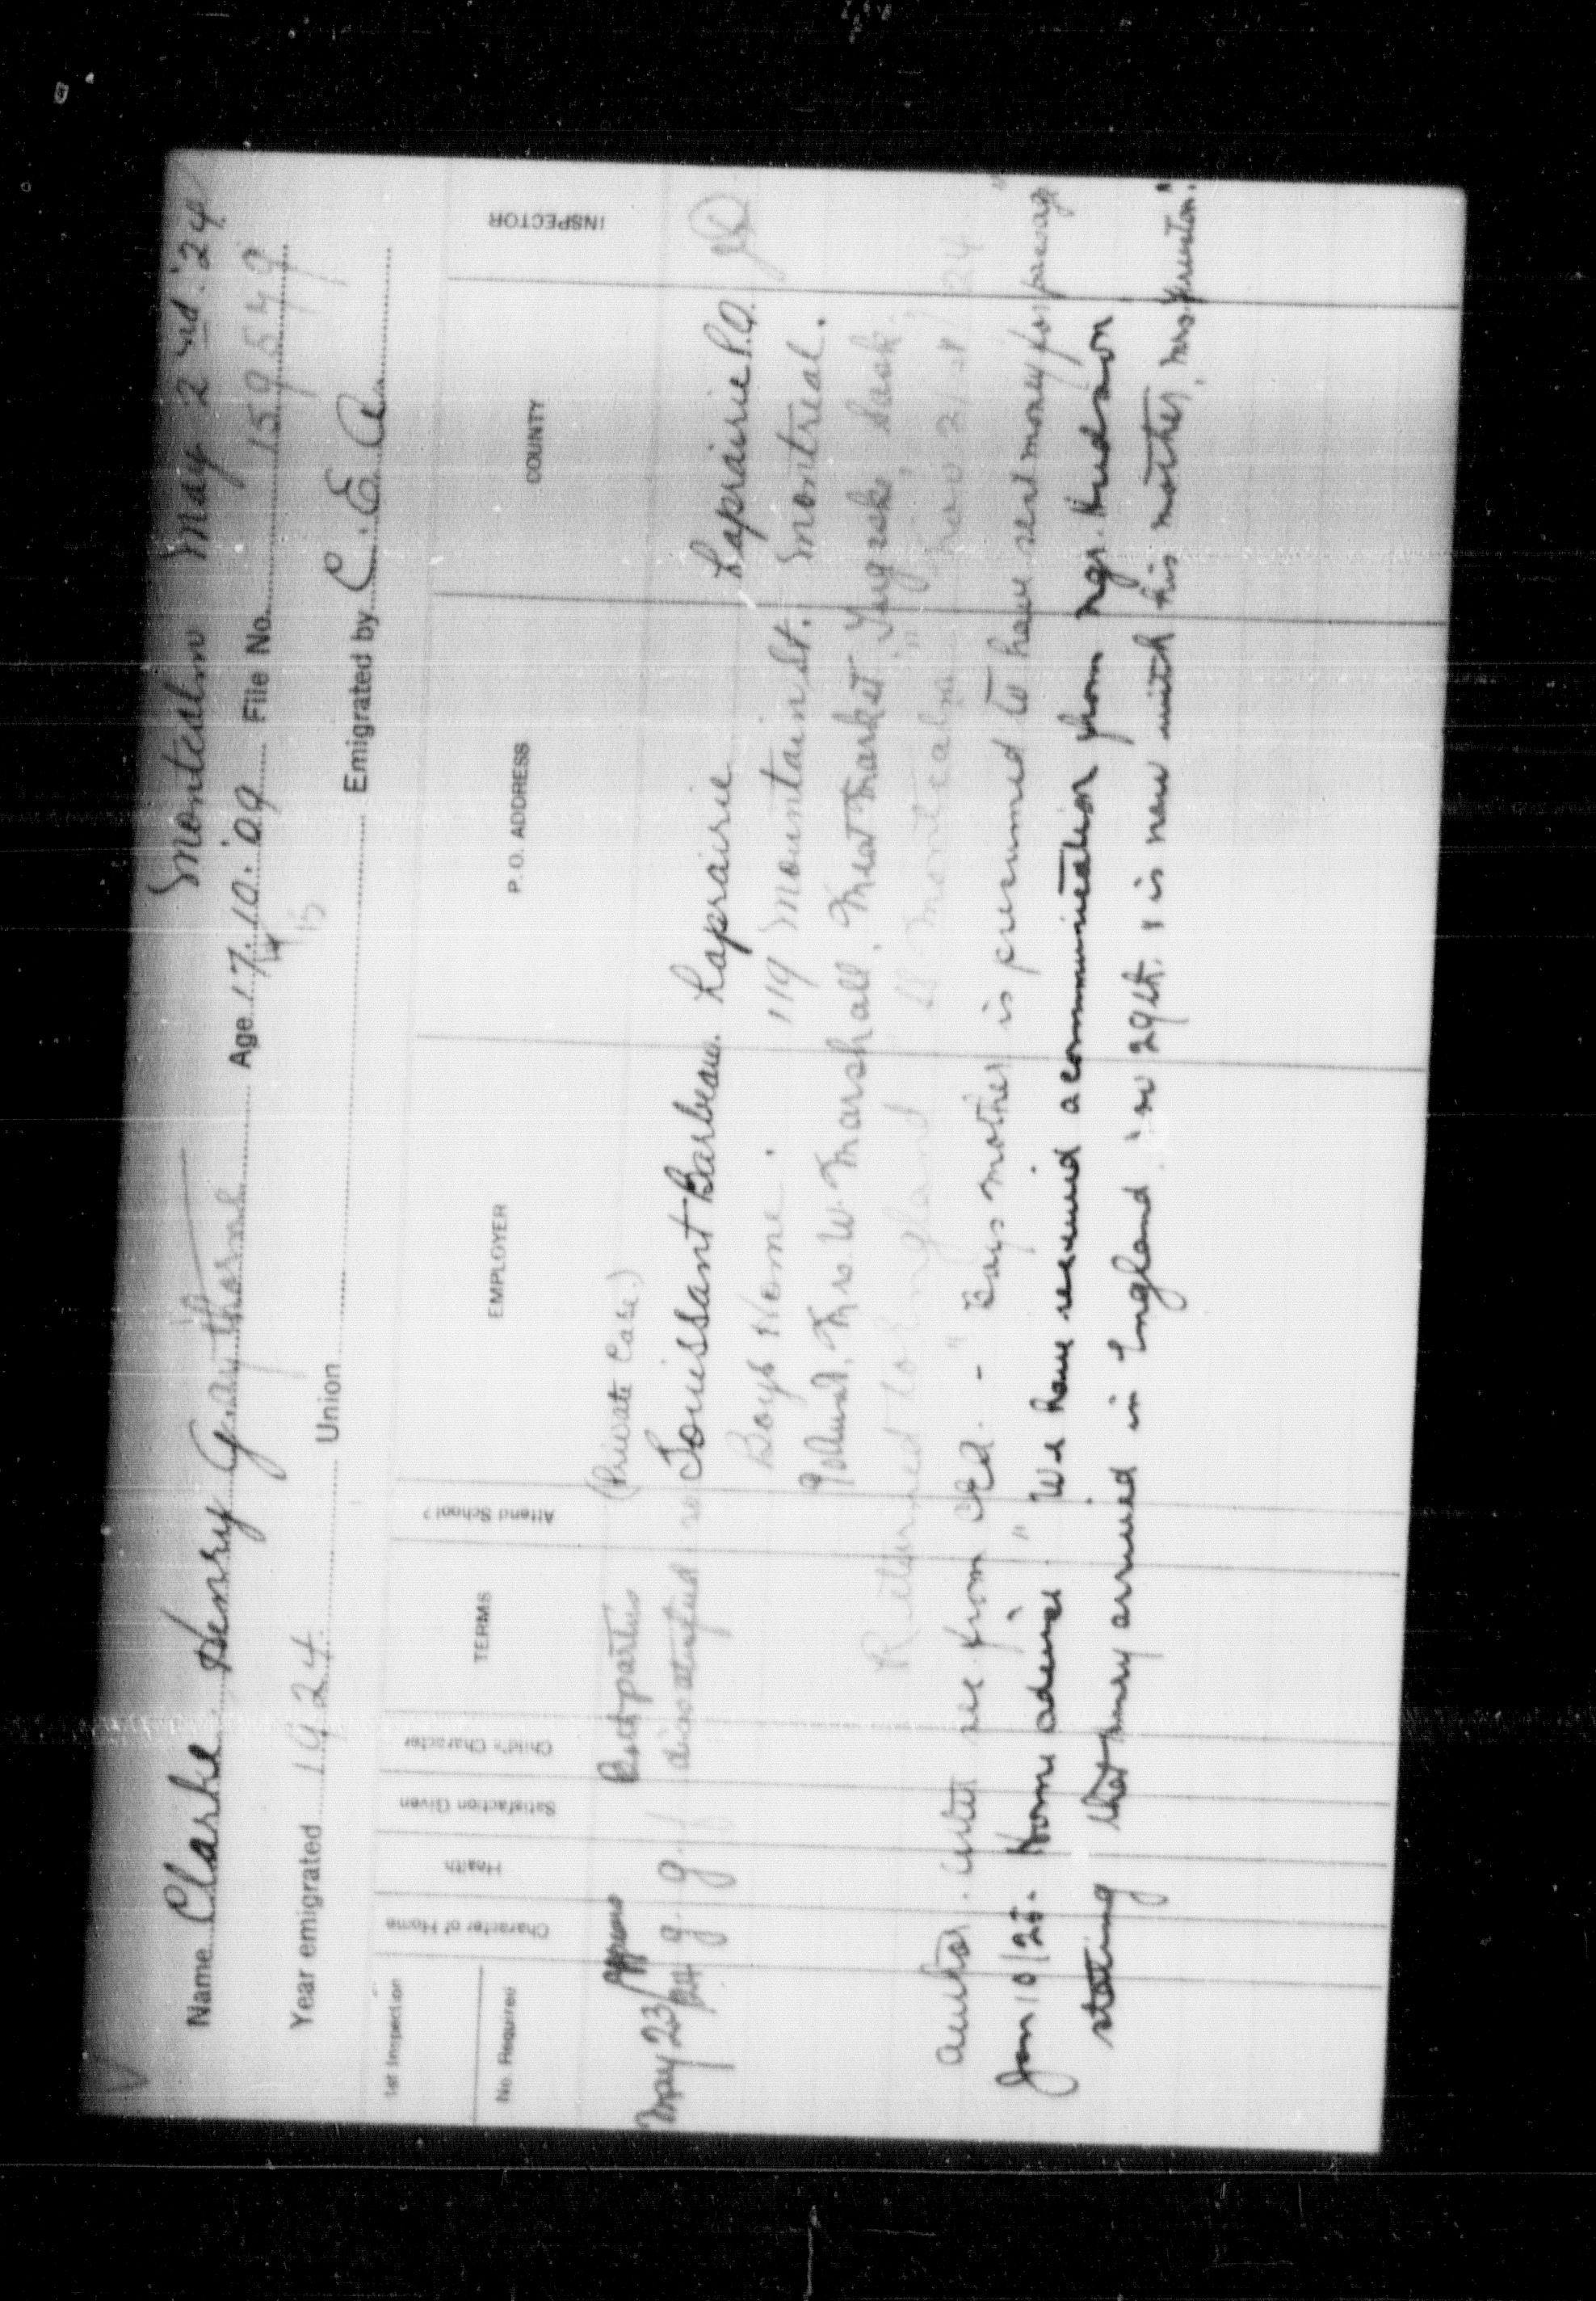 Montcalm May 2nd. '24
Name Clarke Henry Gaythorne Age 17.10.'09 File No. 159549
14
15
Year emigrated 1924 Union Emigrated by C.E.A.
1st Inspection
No. Required
Character of Home
Health
Satisfaction Given
Child's Character
TERMS
Attend School?
EMPLOYER
P.O. ADDRESS
COUNTY
INSPECTOR
Appears Both parties (Private Case.)
May 23/24 g. g. dissatisfied no Touissant Barbeau. Laprairie Laprairie P.Q.
Boys Home. 119 Mountain St. Montreal.
Mrs. W. Marshall, Meat Market, Sask.
Returned to England SS "Montcalm" Nov 21st/24
author. rec from CEA. - "Boys mother is presumed to have sent money for passage"
Jan 10/25. Home advise "We have received a communication from Mgr. Hudson
stating that Henry arrived in England on 29th. & is now with his mother, Mrs.